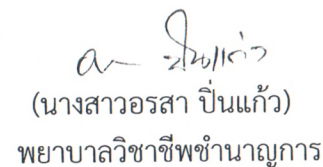 (นางสาวอรสา ปิ่นแก้ว)
พยาบาลวิชาชีพชำนาญการ